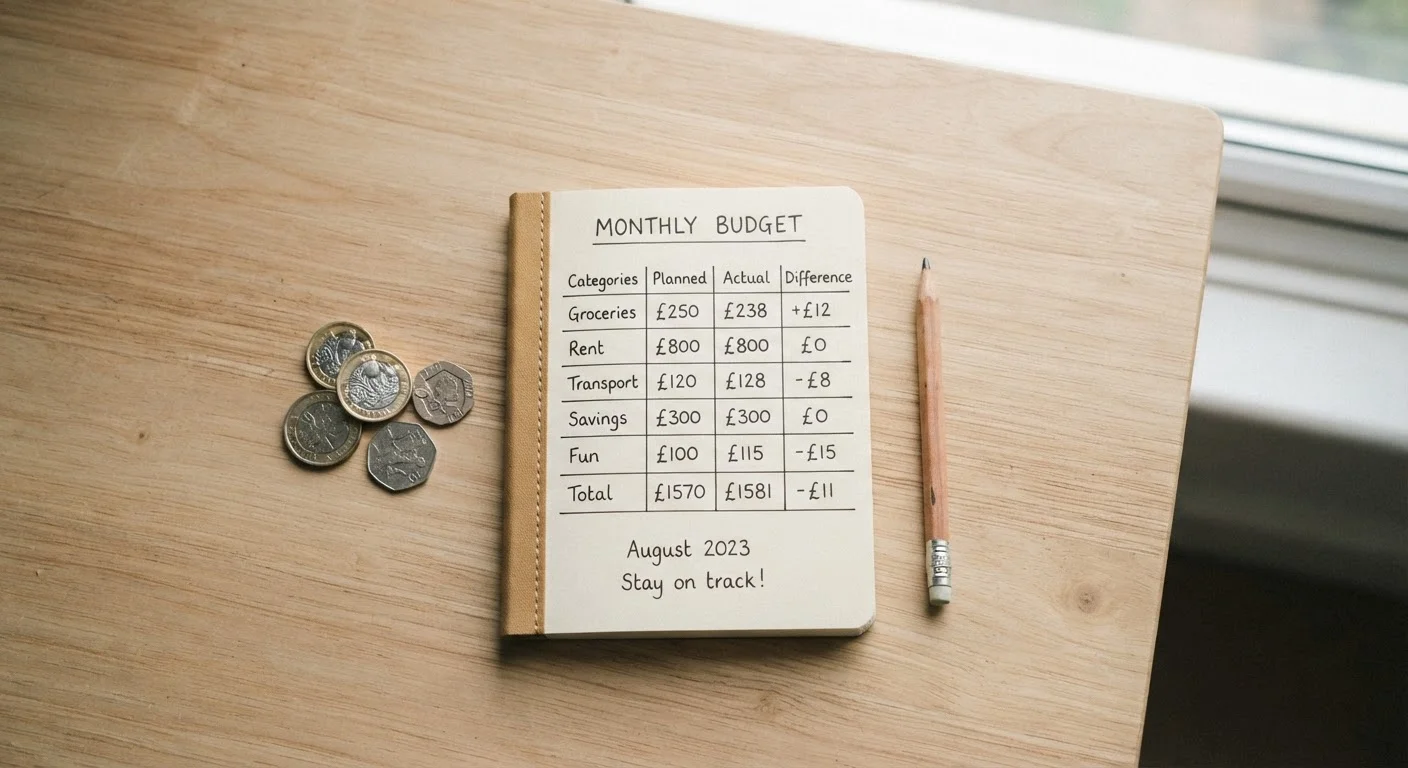 MONTHLY BUDGET
Categories Planned Actual Difference
Groceries £250 £238 +£12
Rent £800 £800 £0
Transport £120 £128 -£8
Savings £300 £300 £0
Fun £100 £115 -£15
Total £1570 £1581 -£11
August 2023
Stay on track!